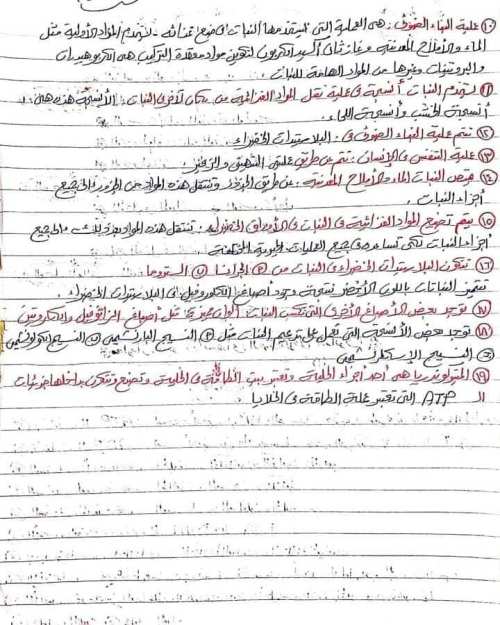 ⑩ عملية البناء الضوئى : هى العملية التى يستخدمها النبات فى صنع غذائه . تستخدم المواد الأولية مثل
الماء والأملاح المعدنية وغاز ثانى أكسيد الكربون لتكوين مواد معقدة التركيب هى الكربوهيدرات
والبروتينات وغيرها من المواد الهامة للنبات .
⑪ تستخدم النبات أنسجة فى عملية نقل المواد الغذائية من مكان لآخر فى النبات . الأنسجة هذه هى :
أنسجة الخشب وأنسجة اللحاء .
⑫ تتم عملية البناء الضوئى فى : البلاستيدات الخضراء
⑬ عملية التنفس فى الإنسان : تتم عن طريق عمليتى الشهيق والزفير .
⑭ يمتص النبات الماء والأملاح المعدنية : عن طريق الجذور وتنتقل هذه المواد من الجذور إلى جميع
أجزاء النبات .
⑮ يتم تصنيع المواد الغذائية فى النبات فى الأوراق الخضراء : تنتقل هذه المواد بعد ذلك إلى جميع
أجزاء النبات لكى تساعده فى جميع العمليات الحيوية المختلفة
⑯ تتكون البلاستيدات الخضراء فى النبات من ① الجرانا ② الستروما .
تتميز النباتات باللون الأخضر نتيجة وجود أصباغ الكلوروفيل فى البلاستيدات الخضراء .
⑰ توجد بعض الأصباغ الأخرى التى تكسب النبات ألوان مميزة مثل أصباغ الزانثوفيل والكاروتين
⑱ توجد بعض الأنسجة التى تعمل على تدعيم النبات مثل ① النسيج البارنشيمى ② النسيج الكولنشيمى
③ النسيج الإسكلرنشيمى
⑲ الميتوكوندريا هى أحد أجزاء الخلية وتعتبر بيت الطاقة فى الخلية وتصنع وتتكون بداخلها جزيئات
الـ ATP التى تعتبر عملة الطاقة فى الخلايا .